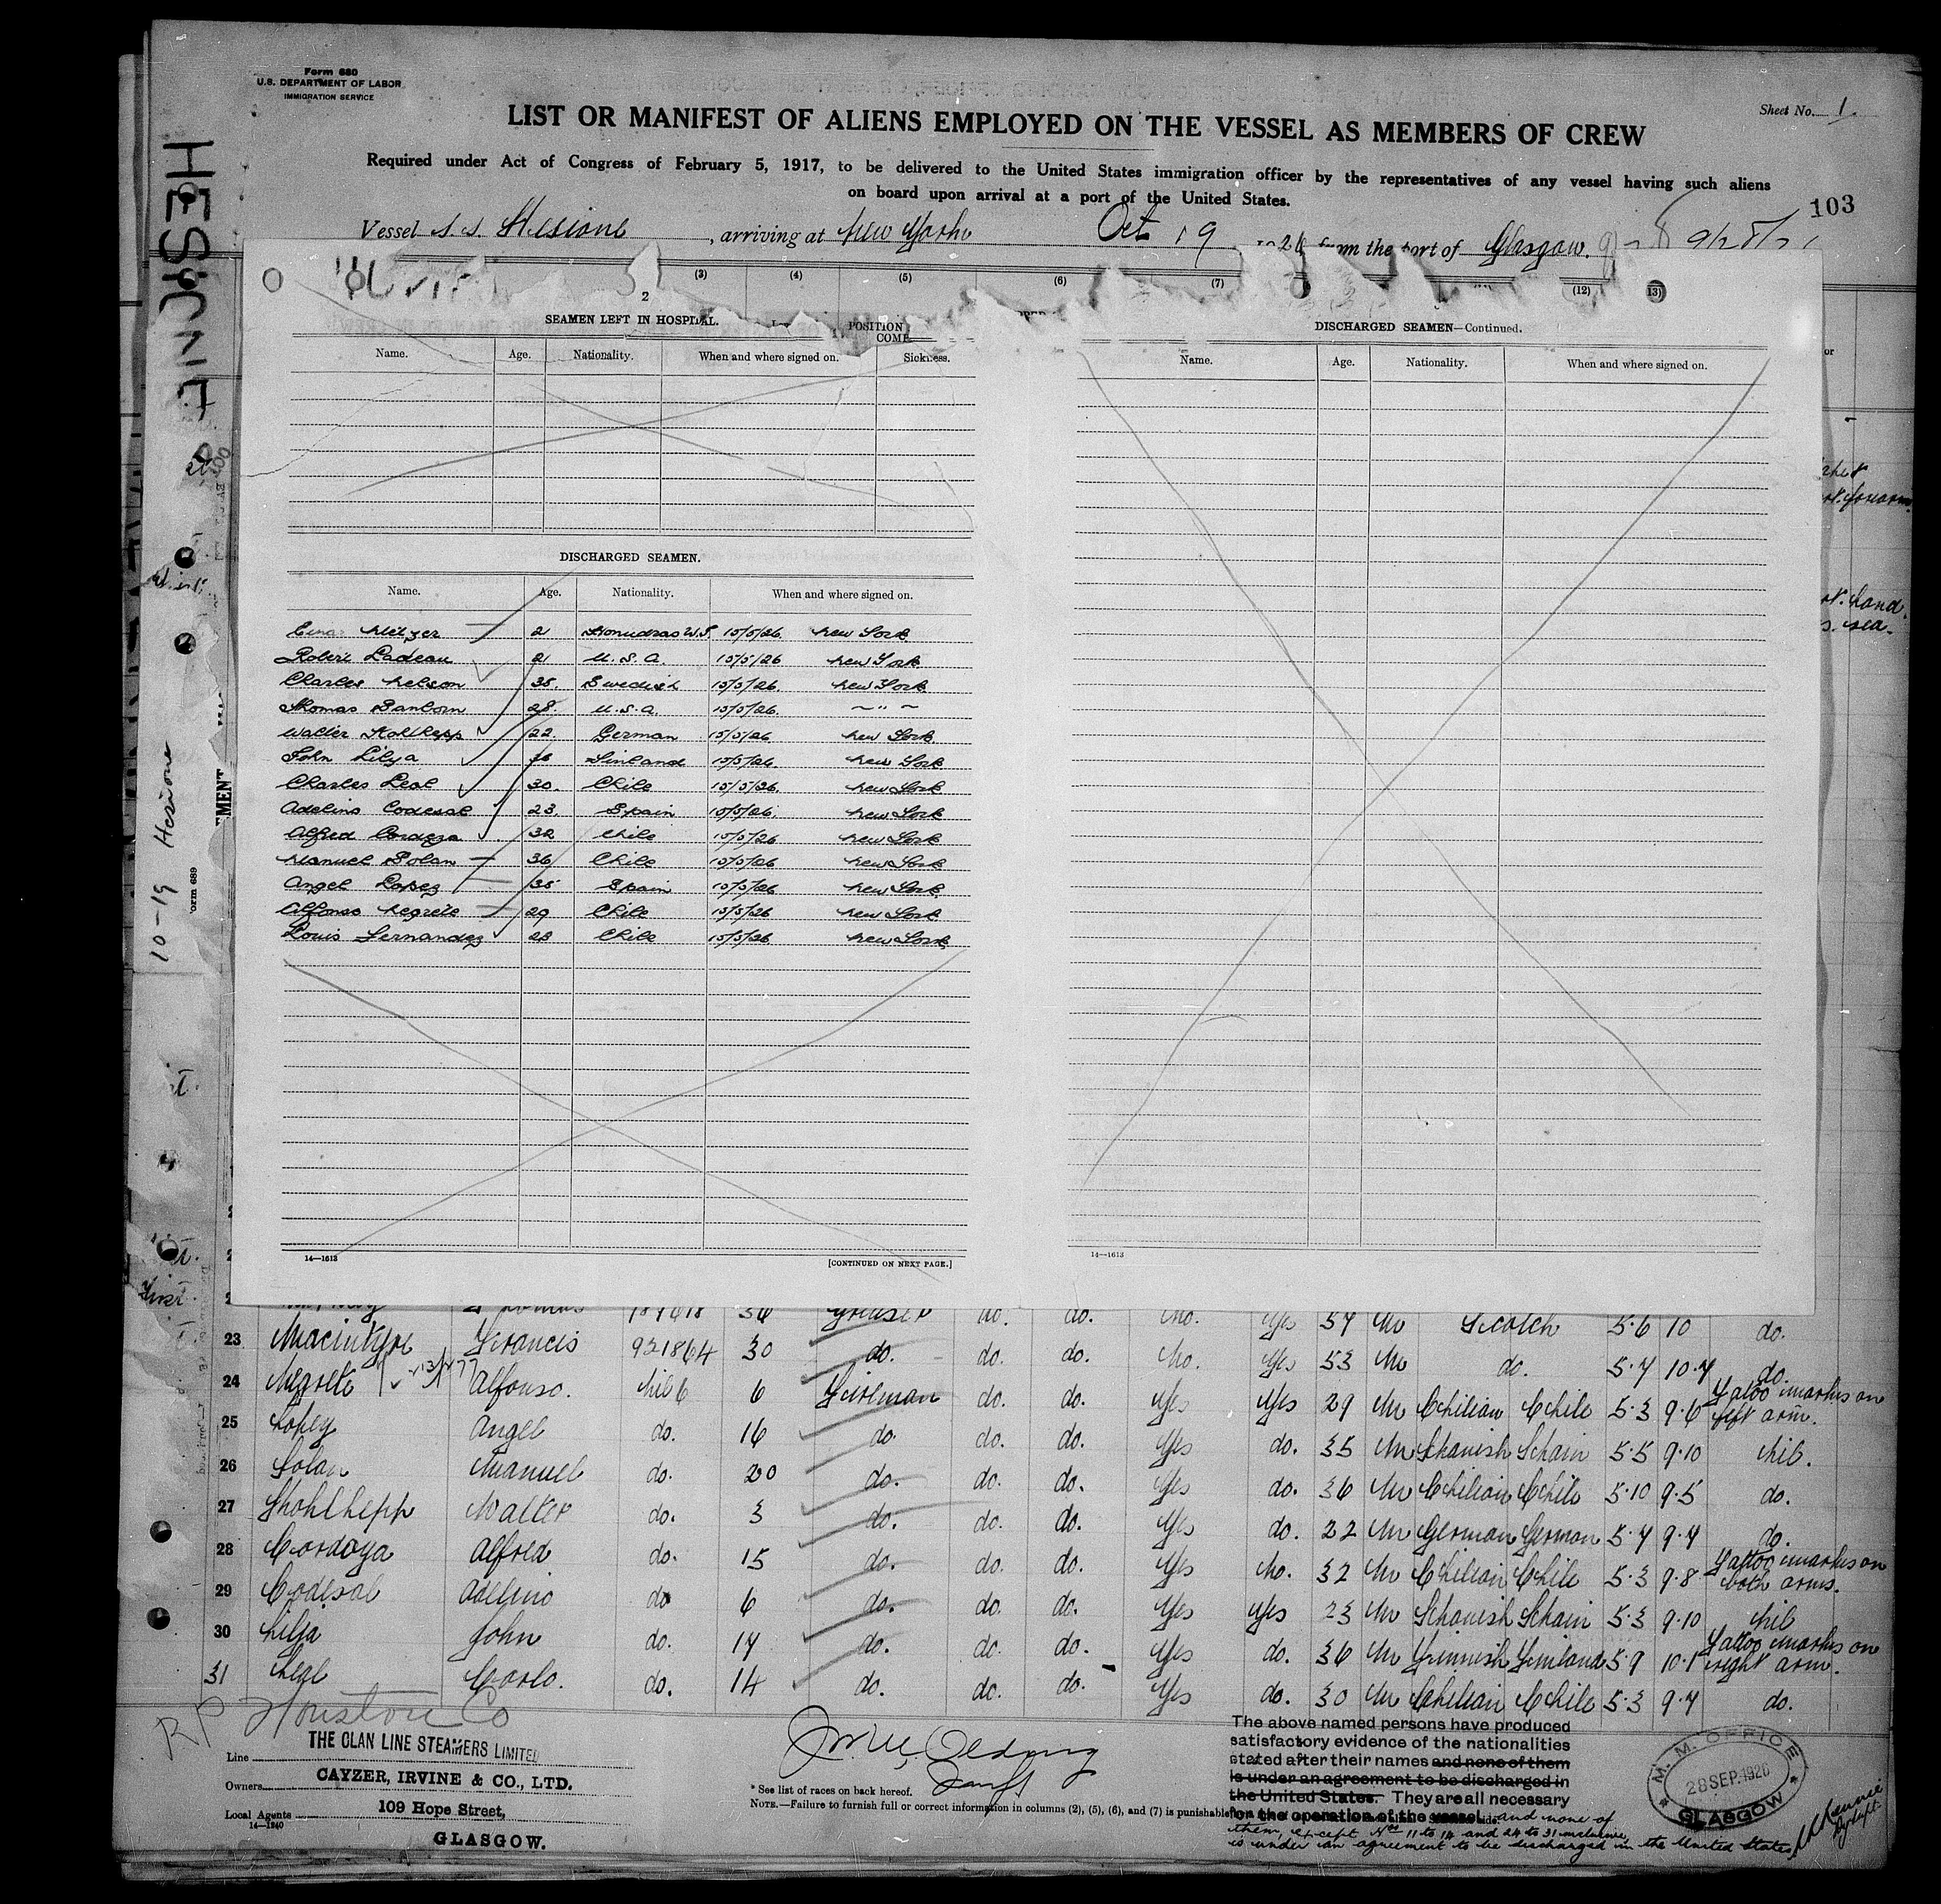 Form 680
U.S. DEPARTMENT OF LABOR
IMMIGRATION SERVICE
Sheet No. 1
LIST OR MANIFEST OF ALIENS EMPLOYED ON THE VESSEL AS MEMBERS OF CREW
Required under Act of Congress of February 5, 1917, to be delivered to the United States immigration officer by the representatives of any vessel having such aliens
on board upon arrival at a port of the United States.
103
Vessel S.S. Hesione, arriving at New York Oct 19 1926 from the port of Glasgow.
HESIONE
(3) (4) (5) (6) (7) (12) (13)
2
SEAMEN LEFT IN HOSPITAL.
POSITION
COMP
Name. Age. Nationality. When and where signed on. Sickness.
DISCHARGED SEAMEN.
Name. Age. Nationality. When and where signed on.
Metzger 2 Honduras 15/5/26 New York
Robert Ladeau 21 U.S.A. 15/5/26 New York
Charles Nelson 35. Swedish 15/5/26 New York
Thomas Sanborn 28. U.S.A. 15/5/26. ~ " ~
Walter Kohlhepp 22 German 15/5/26 New York
John Lilya 36 Finland 15/5/26 New York
Charles Leal 30. Chile 15/5/26 New York
Adelino Codesal 23. Spain 15/5/26 New York
Alfred Cordoza 32 Chile 15/5/26 New York
Manuel Solan 36 Chile 15/5/26 New York
Angel Lopez 35 Spain 15/5/26 New York
Alfonso Negrete 29 Chile 15/5/26 New York
Louis Fernandez 28 Chile 15/5/26 New York
14—1613
[CONTINUED ON NEXT PAGE.]
DISCHARGED SEAMEN—Continued.
Name. Age. Nationality. When and where signed on.
14—1613
10-19 Hesione
Form 689
36 Greaser do. do. No. Yes 54 M Scotch 5.6 10 do.
23 Macintyre Francis 921864 30 do. do. do. No. Yes 53 M do. 5.7 10.7 do.
24 Negrete Alfonso. Nil 6 Fireman do. do. Yes Yes 29 M Chilian Chile 5.3 9.6 Tatoo marks on left arm.
25 Lopez Angel do. 16 do. do. do. Yes do. 35 M Spanish Spain 5.5 9.10 Nil.
26 Solan Manuel do. 20 do. do. do. Yes do. 36 M Chilian Chile 5.10 9.5 do.
27 Kohlhepp Walter do. 3 do. do. do. Yes do. 22 M German German 5.7 9.7 do.
28 Cordoza Alfred do. 15 do. do. do. Yes No. 32 M Chilian Chile 5.3 9.8 Tattoo marks on both arms.
29 Codesal Adelino do 6 do. do. do. Yes Yes 23 M Spanish Spain 5.3 9.10 Nil
30 Lilja John do. 17 do. do. do. Yes do. 36 M Finnish Finland 5.9 10.1 Tattoo marks on right arm.
31 Leal Carlo. do. 14 do. do. do. Yes do. 30 M Chilian Chile 5.3 9.7 do.
RP Houston Co
Line THE CLAN LINE STEAMERS LIMITED
Owners CAYZER, IRVINE & CO., LTD.
Local Agents 109 Hope Street,
14—1240
GLASGOW.
* See list of races on back hereof.
NOTE.—Failure to furnish full or correct information in columns (2), (5), (6), and (7) is punishable
The above named persons have produced
satisfactory evidence of the nationalities
stated after their names and none of them
is under an agreement to be discharged in
the United States. They are all necessary
for the operation of the vessel and none of
them, except Nos 11 to 14 and 24 to 31 inclusive,
is under an agreement to be discharged in the United States
M. M. OFFICE
28 SEP. 1926
GLASGOW